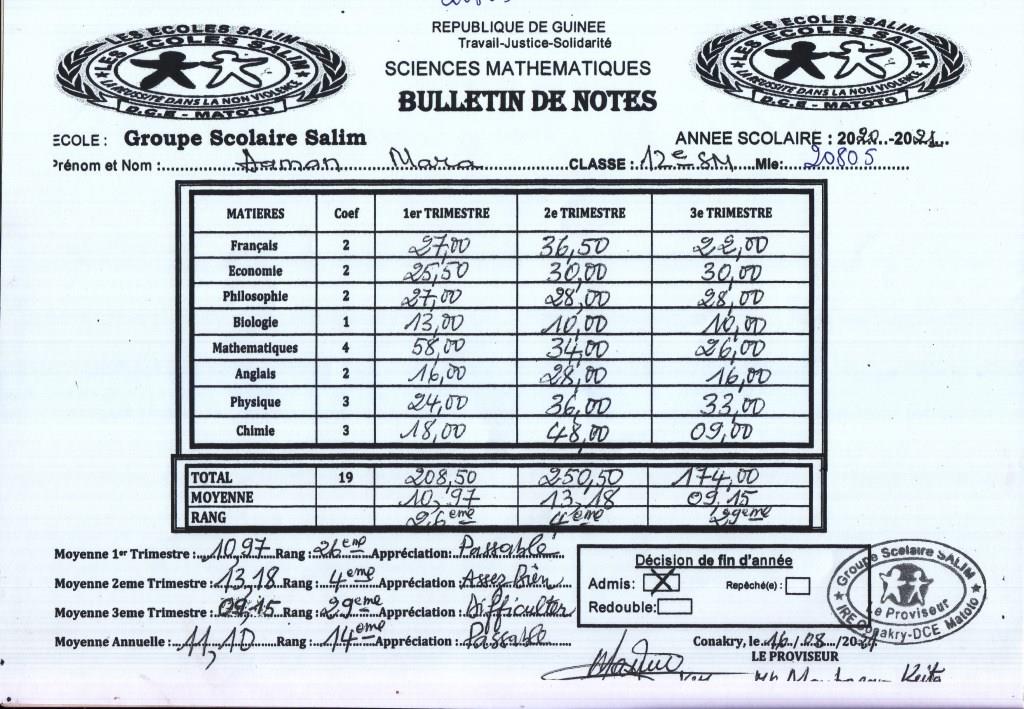 REPUBLIQUE DE GUINEE
Travail-Justice-Solidarité
SCIENCES MATHEMATIQUES
BULLETIN DE NOTES
LES ECOLES SALIM
LES ECOLES SALIM
LA REUSSITE DANS LA NON VIOLENCE
D.C.E - MATOTO
LES ECOLES SALIM
LES ECOLES SALIM
LA REUSSITE DANS LA NON VIOLENCE
D.C.E - MATOTO
ECOLE : Groupe Scolaire Salim ANNEE SCOLAIRE : 2020-2021
Prénom et Nom : Mara CLASSE : 12e SM Mle: 20805
MATIERES Coef 1er TRIMESTRE 2e TRIMESTRE 3e TRIMESTRE
Français 2 27,00 36,50 22,00
Economie 2 25,50 30,00 30,00
Philosophie 2 27,00 28,00 28,00
Biologie 1 13,00 10,00 10,00
Mathematiques 4 58,00 34,00 26,00
Anglais 2 16,00 28,00 16,00
Physique 3 24,00 36,00 33,00
Chimie 3 18,00 48,00 09,00
TOTAL 19 208,50 250,50 174,00
MOYENNE 10,97 13,18 09,15
RANG 26eme 4eme 29eme
Moyenne 1er Trimestre : 10,97 Rang : 26eme Appréciation: Passable
Moyenne 2eme Trimestre : 13,18 Rang : 4eme Appréciation : Assez Bien
Moyenne 3eme Trimestre : 09,15 Rang : 29eme Appréciation : Difficulter
Moyenne Annuelle : 11,10 Rang : 14eme Appréciation : Passable
Décision de fin d'année
Admis: X Repêché(e) :
Redouble:
Conakry, le 16/08/2021
LE PROVISEUR
Keita
Groupe Scolaire SALIM
Le Proviseur
IRE Conakry-DCE Matoto